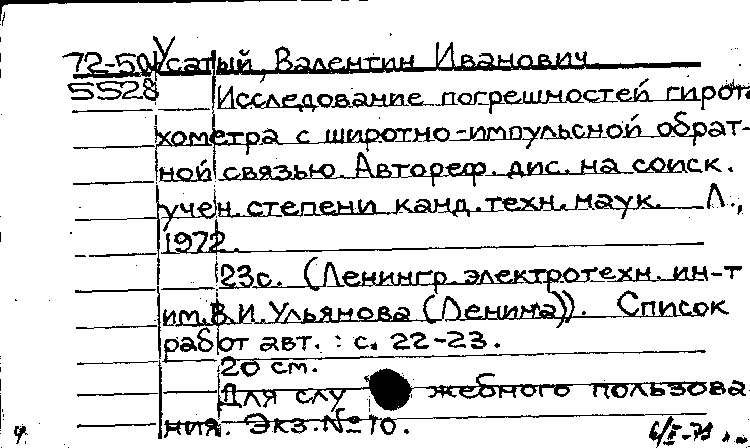 72-50 Усатый, Валентин Иванович
5528 Исследование погрешностей гирота
хометра с широтно-импульсной обрат-
ной связью. Автореф. дис. на соиск.
учен. степени канд. техн. наук. Л.,
1972.
23с. (Ленингр. электротехн. ин-т
им. В.И. Ульянова (Ленина)). Список
работ авт.: с. 22-23.
20 см.
Для служебного пользова
ния. Экз. № 10.